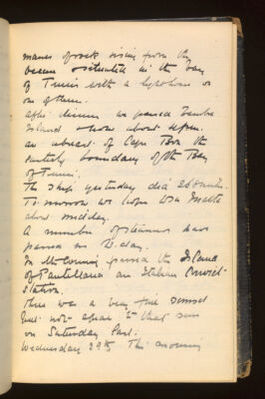 masses of rock rising from the
ocean & situated in the bay
of Tunis with a lighthouse on
one of them.
After dinner we passed Zembra
Island & now about 9 p.m.
are abreast of Cape Bon the
easterly boundary of the Bay
of Tunis.
The ship yesterday did 260 miles.
To-morrow we hope to see Malta
about midday.
A number of steamers have
passed us to-day.
In the evening passed the Island
of Pantellaria an Italian Convict-
station.
There was a very fine sunset
but not equal to that seen
on Saturday last.
Wednesday 29th This morning